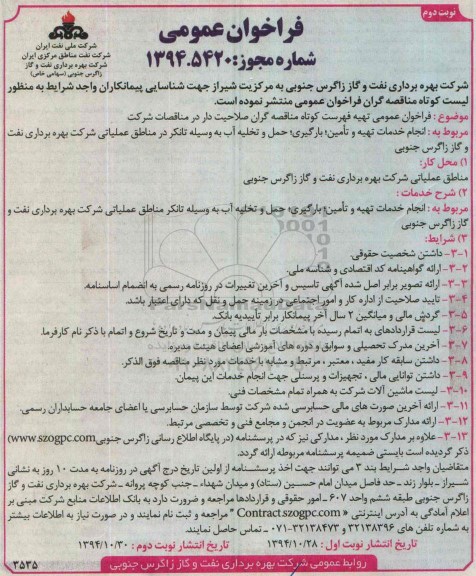 نوبت دوم
فراخوان عمومی
شماره مجوز: ۱۳۹۴.۵۴۲۰
شرکت ملی نفت ایران
شرکت نفت مناطق مرکزی ایران
شرکت بهره برداری نفت و گاز
زاگرس جنوبی (سهامی خاص)
شرکت بهره برداری نفت و گاز زاگرس جنوبی به مرکزیت شیراز جهت شناسایی پیمانکاران واجد شرایط به منظور
لیست کوتاه مناقصه گران فراخوان عمومی منتشر نموده است.
موضوع : فراخوان عمومی تهیه فهرست کوتاه مناقصه گران صلاحیت دار در مناقصات شرکت
مربوط به : انجام خدمات تهیه و تأمین؛ بارگیری؛ حمل و تخلیه آب به وسیله تانکر در مناطق عملیاتی شرکت بهره برداری نفت
و گاز زاگرس جنوبی
۱) محل کار:
مناطق عملیاتی شرکت بهره برداری نفت و گاز زاگرس جنوبی
۲) شرح خدمات :
مربوط به : انجام خدمات تهیه و تأمین؛ بارگیری؛ حمل و تخلیه آب به وسیله تانکر مناطق عملیاتی شرکت بهره برداری نفت و
گاز زاگرس جنوبی
۳) شرایط:
۳-۱- داشتن شخصیت حقوقی.
۳-۲- ارائه گواهینامه کد اقتصادی و شناسه ملی.
۳-۳- ارائه تصویر برابر اصل شده آگهی تاسیس و آخرین تغییرات در روزنامه رسمی به انضمام اساسنامه.
۳-۴- تایید صلاحیت از اداره کار و امور اجتماعی در زمینه حمل و نقل که دارای اعتبار باشد.
۳-۵- گردش مالی و میانگین ۲ سال آخر پیمانکار برابر تأییدیه بانک.
۳-۶- لیست قراردادهای به اتمام رسیده با مشخصات بار مالی پیمان و مدت و تاریخ شروع و اتمام با ذکر نام کارفرما.
۳-۷- آخرین مدرک تحصیلی و سوابق و دوره های آموزشی اعضای هیئت مدیره.
۳-۸- داشتن سابقه کار مفید ، معتبر ، مرتبط و مشابه با خدمات مورد نظر مناقصه فوق الذکر.
۳-۹- داشتن توانایی مالی ، تجهیزات و پرسنلی جهت انجام خدمات این پیمان.
۳-۱۰- لیست ماشین آلات شرکت به همراه تمام مشخصات فنی.
۳-۱۱- ارائه آخرین صورت های مالی حسابرسی شده شرکت توسط سازمان حسابرسی یا اعضای جامعه حسابداران رسمی.
۳-۱۲- ارائه مدارک مربوط به عضویت در انجمن و مجامع فنی و تخصصی مرتبط.
۳-۱۳- علاوه بر مدارک مورد نظر ، مدارکی نیز که در پرسشنامه (در پایگاه اطلاع رسانی زاگرس جنوبی www.szogpc.com)
ذکر گردیده است بایستی ضمیمه پرسشنامه مربوطه ارائه گردد.
متقاضیان واجد شرایط بند ۳ می توانند جهت اخذ پرسشنامه از اولین تاریخ درج آگهی در روزنامه به مدت ۱۰ روز به نشانی
شیراز - بلوار زند - حد فاصل میدان امام حسین (ستاد) و میدان شهداء - جنب کوچه پروانه - شرکت بهره برداری نفت و گاز
زاگرس جنوبی طبقه ششم واحد ۶۰۷ - امور حقوقی و قراردادها مراجعه و ضرورت دارد به بانک اطلاعات منابع شرکت مبنی بر
اعلام آمادگی به آدرس اینترنتی « Contract.szogpc.com » مراجعه و ثبت نام نمایند و در صورت نیاز به اطلاعات بیشتر
به شماره تلفن های ۳۲۱۳۸۳۹۶ و ۳۲۱۳۸۴۷۳-۰۷۱ تماس حاصل نمایند.
تاریخ انتشار نوبت اول : ۱۳۹۴/۱۰/۲۸ تاریخ انتشار نوبت دوم : ۱۳۹۴/۱۰/۳۰
روابط عمومی شرکت بهره برداری نفت و گاز زاگرس جنوبی
۳۵۳۵